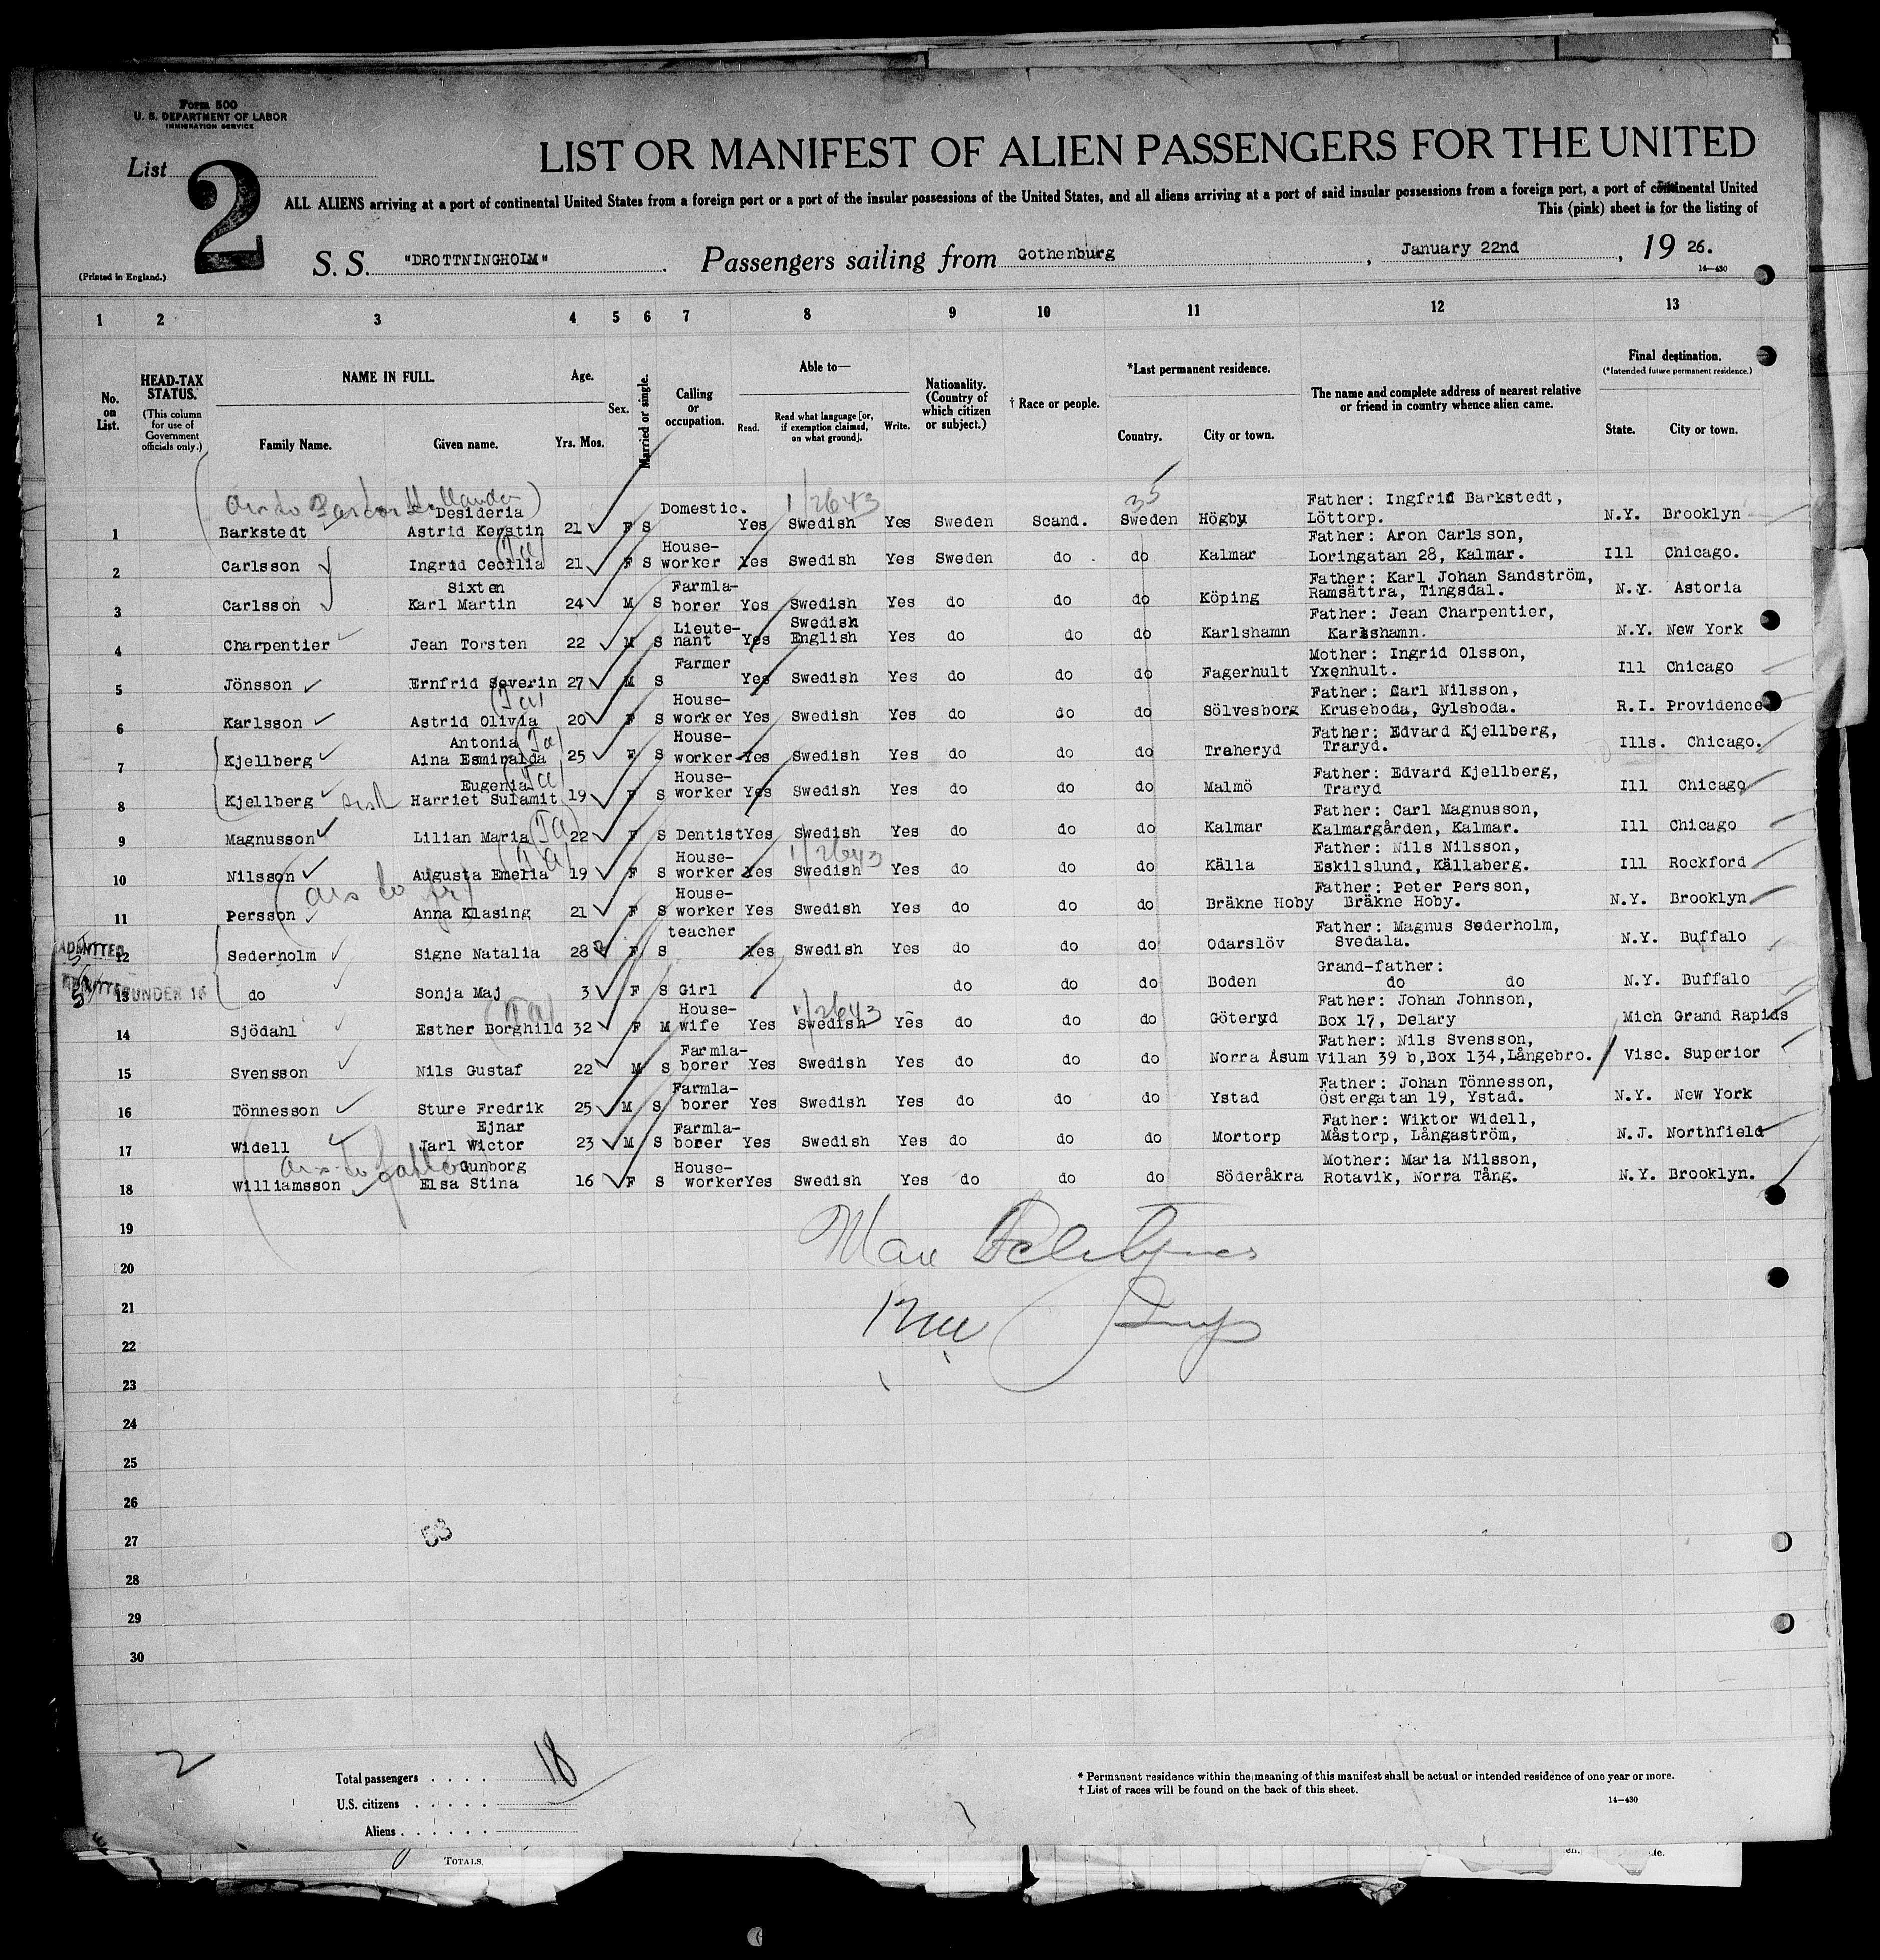 Form 500
U. S. DEPARTMENT OF LABOR
IMMIGRATION SERVICE
List 2
LIST OR MANIFEST OF ALIEN PASSENGERS FOR THE UNITED
ALL ALIENS arriving at a port of continental United States from a foreign port or a port of the insular possessions of the United States, and all aliens arriving at a port of said insular possessions from a foreign port, a port of continental United
This (pink) sheet is for the listing of
(Printed in England.)
S. S. "DROTTNINGHOLM" Passengers sailing from Gothenburg, January 22nd, 19 26.
14—430
1 2 3 4 5 6 7 8 9 10 11 12 13
No. on List.
HEAD-TAX STATUS.
(This column for use of Government officials only.)
NAME IN FULL.
Family Name. Given name.
Age.
Yrs. Mos.
Sex.
Married or single.
Calling or occupation.
Able to—
Read. Read what language [or, if exemption claimed, on what ground]. Write.
Nationality. (Country of which citizen or subject.)
† Race or people.
*Last permanent residence.
Country. City or town.
The name and complete address of nearest relative or friend in country whence alien came.
Final destination.
(*Intended future permanent residence.)
State. City or town.
1/2643 35
Desideria Domestic. Father: Ingfrid Barkstedt,
1 Barkstedt Astrid Kerstin 21 F S Yes Swedish Yes Sweden Scand. Sweden Högby Löttorp. N.Y. Brooklyn
(Ta) House- Father: Aron Carlsson,
2 Carlsson Ingrid Cecilia 21 F S worker Yes Swedish Yes Sweden do do Kalmar Loringatan 28, Kalmar. Ill Chicago.
Sixten Farmla- Father: Karl Johan Sandström,
3 Carlsson Karl Martin 24 M S borer Yes Swedish Yes do do do Köping Ramsättra, Tingsdal. N.Y. Astoria
Lieute- Swedish Father: Jean Charpentier,
4 Charpentier Jean Torsten 22 M S nant Yes English Yes do do do Karlshamn Karlshamn. N.Y. New York
Farmer Mother: Ingrid Olsson,
5 Jönsson Ernfrid Severin 27 M S Yes Swedish Yes do do do Fagerhult Yxenhult. Ill Chicago
(Ta) House- Father: Carl Nilsson,
6 Karlsson Astrid Olivia 20 F S worker Yes Swedish Yes do do do Sölvesborg Kruseboda, Gylsboda. R.I. Providence
Antonia (Ta) House- Father: Edvard Kjellberg,
7 Kjellberg Aina Esmiralda 25 F S worker Yes Swedish Yes do do do Traheryd Traryd. Ills. Chicago.
Eugenia (Ta) House- Father: Edvard Kjellberg,
8 Kjellberg sist Harriet Sulamit 19 F S worker Yes Swedish Yes do do do Malmö Traryd Ill Chicago
Father: Carl Magnusson,
9 Magnusson Lilian Maria (Ta) 22 F S Dentist Yes Swedish Yes do do do Kalmar Kalmargården, Kalmar. Ill Chicago
(Ta) House- 1/2643 Father: Nils Nilsson,
10 Nilsson Augusta Emelia 19 F S worker Yes Swedish Yes do do do Källa Eskilslund, Källaberg. Ill Rockford
House- Father: Peter Persson,
11 Persson Anna Klasing 21 F S worker Yes Swedish Yes do do do Bräkne Hoby Bräkne Hoby. N.Y. Brooklyn
teacher Father: Magnus Sederholm,
ADMITTED 12 Sederholm Signe Natalia 28 F S Yes Swedish Yes do do do Odarslöv Svedala. N.Y. Buffalo
Grand-father:
ADMITTED 13 UNDER 16 do Sonja Maj 3 F S Girl do do do Boden do do N.Y. Buffalo
(Ta) House- 1/2643 Father: Johan Johnson,
14 Sjödahl Esther Borghild 32 F M wife Yes Swedish Yes do do do Göteryd Box 17, Delary Mich Grand Rapids
Farmla- Father: Nils Svensson,
15 Svensson Nils Gustaf 22 M S borer Yes Swedish Yes do do do Norra Åsum Vilan 39 b, Box 134, Långebro. Visc. Superior
Farmla- Father: Johan Tönnesson,
16 Tönnesson Sture Fredrik 25 M S borer Yes Swedish Yes do do do Ystad Östergatan 19, Ystad. N.Y. New York
Ejnar Farmla- Father: Wiktor Widell,
17 Widell Jarl Wictor 23 M S borer Yes Swedish Yes do do do Mortorp Måstorp, Långaström, N.J. Northfield
Gunborg House- Mother: Maria Nilsson,
18 Williamsson Elsa Stina 16 F S worker Yes Swedish Yes do do do Söderåkra Rotavik, Norra Tång. N.Y. Brooklyn.
19
20
21
22
23
24
25
26
27
28
29
30
2
Total passengers 18
U.S. citizens
Aliens
* Permanent residence within the meaning of this manifest shall be actual or intended residence of one year or more.
† List of races will be found on the back of this sheet.
14—430
TOTALS.